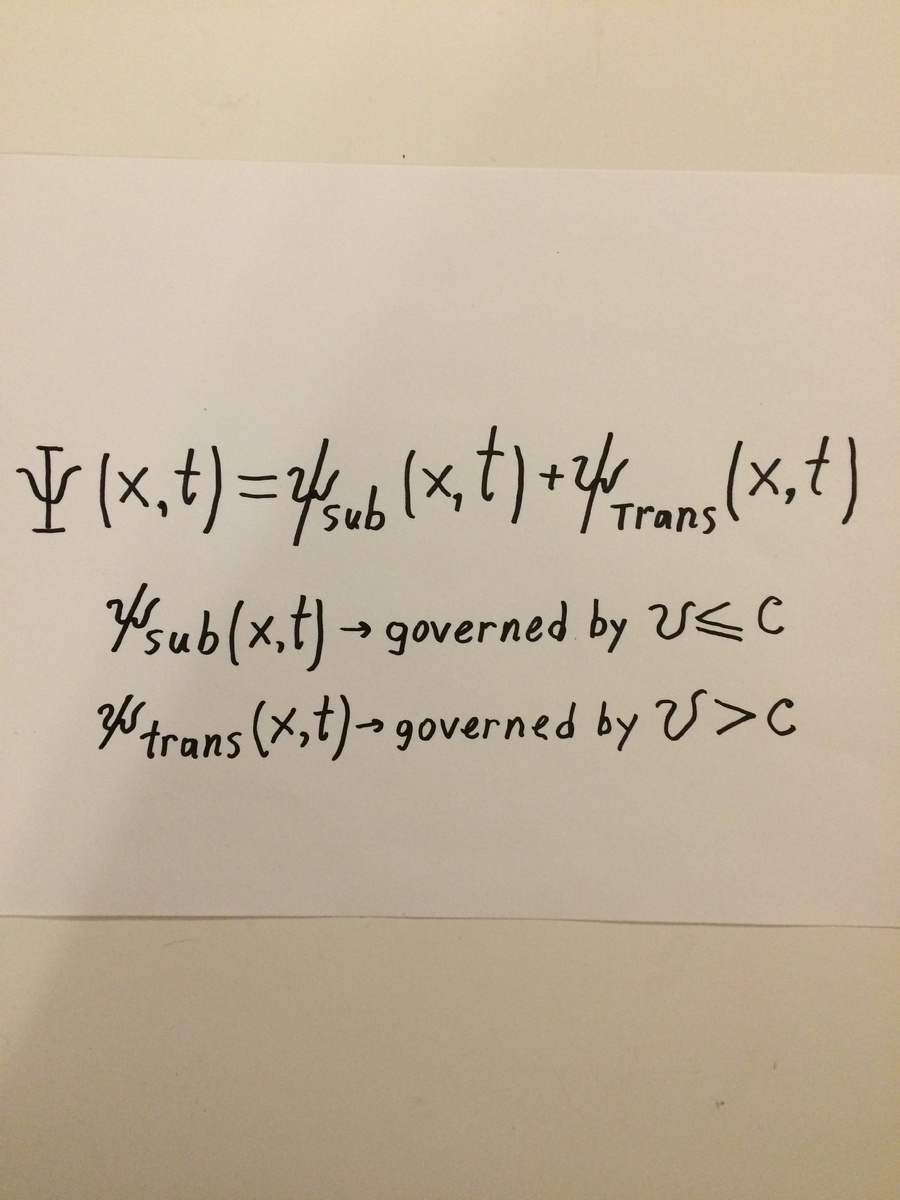 Ψ(x,t)=ψ_sub(x,t)+ψ_Trans(x,t)
ψ_sub(x,t)→governed by v⩽c
ψ_trans(x,t)→governed by v>c